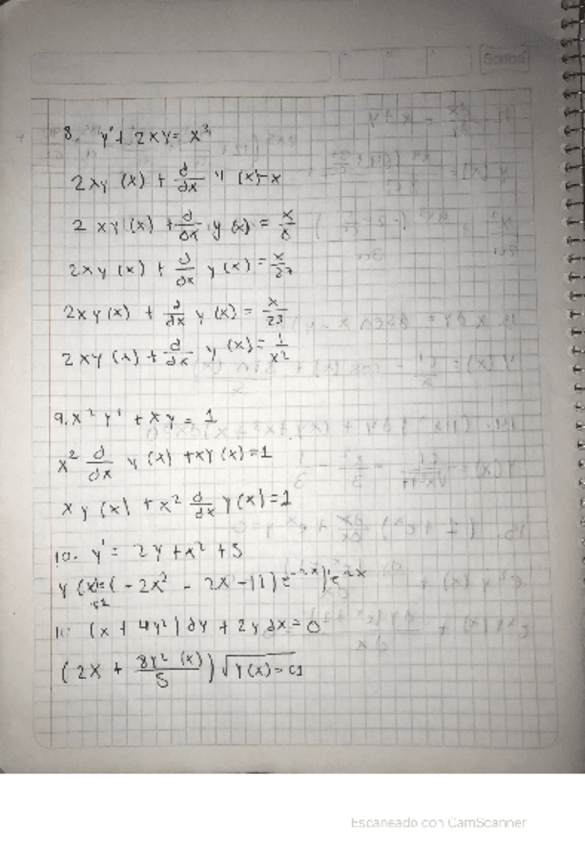 8. y' + 2xy = x³
2xy (x) + d/dx y (x) = x
2 xy (x) + d/dx y (x) = x/8
2xy (x) + d/dx y (x) = x/27
2xy (x) + d/dx y (x) = x/23
2xy (x) + d/dx y (x) = 1/x²
9. x² y' + xy = 1
x² d/dx y (x) + xy (x) = 1
xy (x) + x² d/dx y (x) = 1
10. y' = 2y + x² + 5
y (x) = (-2x² - 2x - 11) e^-2x) e^2x
(x + 4y²) dy + 2y dx = 0
(2x + 8y² (x)/5) √y(x) = C1
Escaneado con CamScanner